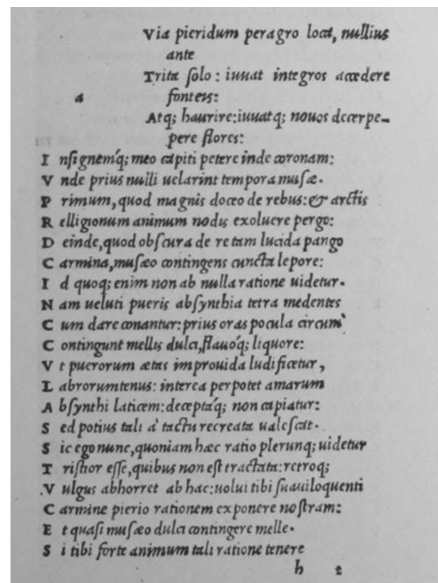 Via pieridum peragro loca, nullius
ante
Trita solo: iuuat integros accedere
a fonteis:
Atq; haurire: iuuatq; nouos decerpe-
pere flores:
I nsignemq́; meo capiti petere inde coronam:
V nde prius nulli uelarint tempora musæ.
P rimum, quod magnis doceo de rebus: & arctis
R elligionum animum nodis exoluere pergo:
D einde, quod obscura de re tam lucida pango
C armina, musæo contingens cuncta lepore:
I d quoq; enim non ab nulla ratione uidetur.
N am ueluti pueris absynthia tetra medentes
C um dare conantur: prius oras pocula circum
C ontingunt mellis dulci, flauoq́; liquore:
V t puerorum ætas improuida ludificetur,
L abrorumtenus: interea perpotet amarum
A bsynthi laticem: deceptaq́; non capiatur:
S ed potius tali à tactu recreata ualescat.
S ic ego nunc, quoniam hæc ratio plerunq; uidetur
T ristior esse, quibus non est tractata: retroq;
V ulgus abhorret ab hac: uolui tibi suauiloquenti
C armine pierio rationem exponere nostram:
E t quasi musæo dulci contingere melle.
S i tibi forte animum tali ratione tenere
h